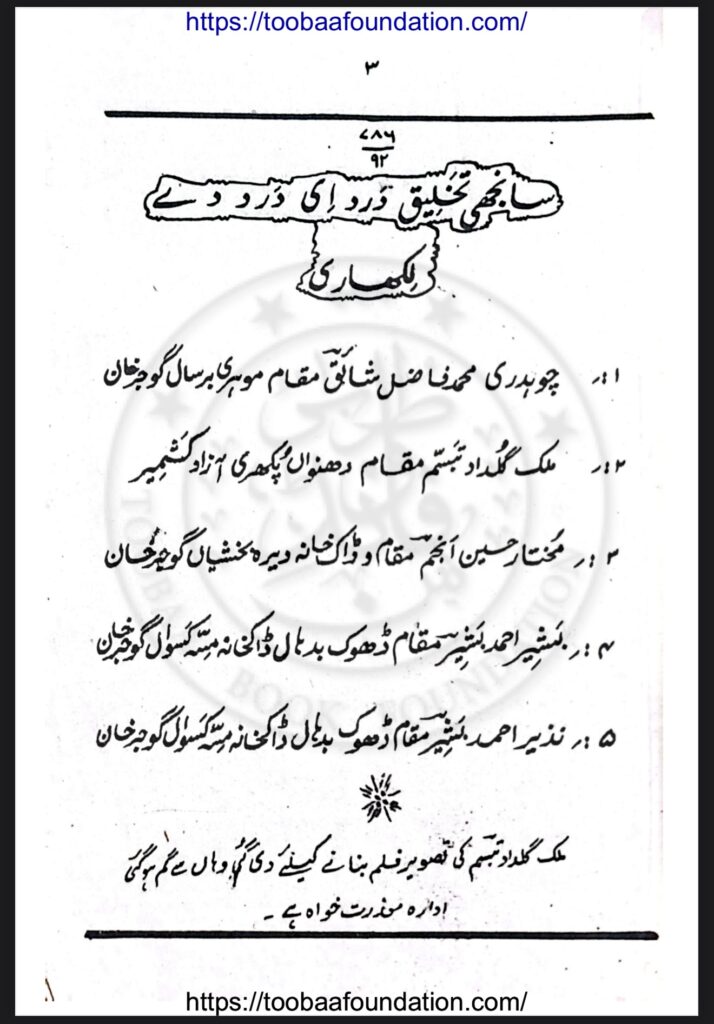 https://toobaafoundation.com/
۳
۷۸۶
۹۲
سانجھی تخلیق دَرد اِی دَرد دے
لِکھاری
۱:۔ چوہدری محمد فاضل شائقؔ مقام موہری برسال گوجرخان
۲:۔ ملک گلداد تبسّمؔ مقام دھنواں پکھری آزاد کشمیر
۳:۔ مختار حسین انجمؔ مقام و ڈاک خانہ دیرہ بخشیاں گوجرخان
۴:۔ بشیر احمد بشیرؔ مقام ڈھوک بدہال ڈاکخانہ مسّہ کسوال گوجرخان
۵:۔ نذیر احمد بشیرؔ مقام ڈھوک بدہال ڈاکخانہ مسّہ کسوال گوجرخان
ملک گلداد تبسمؔ کی تصویر فلم بنانے کیلئے دی گئی وہاں سے گم ہوگئی
ادارہ معذرت خواہ ہے۔
https://toobaafoundation.com/